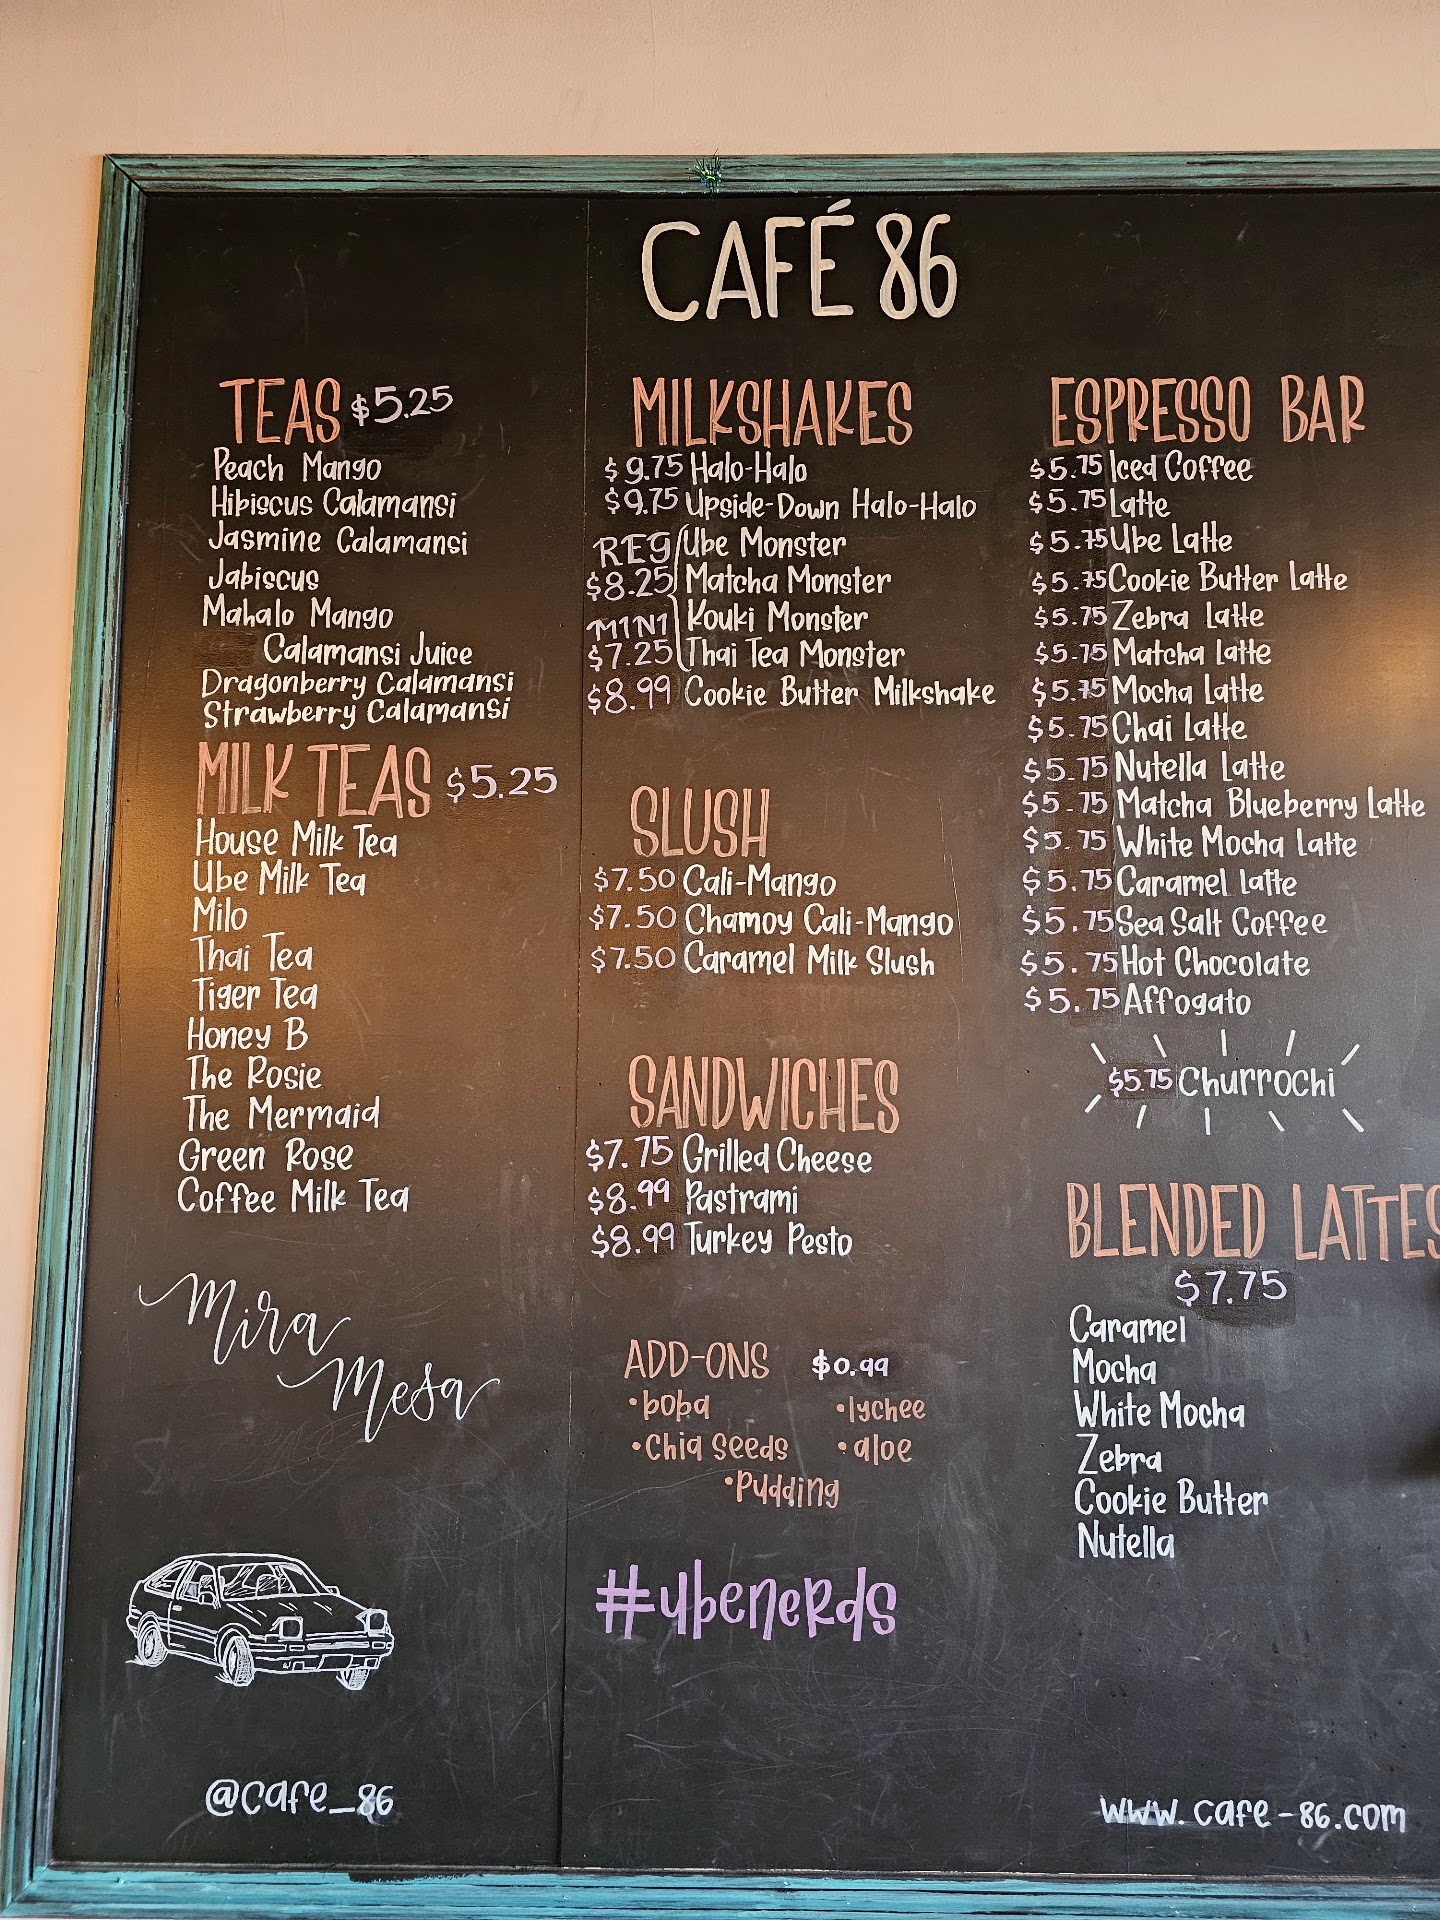 CAFÉ 86
TEAS $5.25
Peach Mango
Hibiscus Calamansi
Jasmine Calamansi
Jabiscus
Mahalo Mango
Calamansi Juice
Dragonberry Calamansi
Strawberry Calamansi
MILK TEAS $5.25
House Milk Tea
Ube Milk Tea
Milo
Thai Tea
Tiger Tea
Honey B
The Rosie
The Mermaid
Green Rose
Coffee Milk Tea
Mira
Mesa
@cafe_86
MILKSHAKES
$9.75 Halo-Halo
$9.75 Upside-Down Halo-Halo
REG Ube Monster
$8.25 Matcha Monster
MINI Kouki Monster
$7.25 Thai Tea Monster
$8.99 Cookie Butter Milkshake
SLUSH
$7.50 Cali-Mango
$7.50 Chamoy Cali-Mango
$7.50 Caramel Milk Slush
SANDWICHES
$7.75 Grilled Cheese
$8.99 Pastrami
$8.99 Turkey Pesto
ADD-ONS $0.99
•boba •lychee
•Chia Seeds •aloe
•Pudding
#ubenerds
ESPRESSO BAR
$5.75 Iced Coffee
$5.75 Latte
$5.75 Ube Latte
$5.75 Cookie Butter Latte
$5.75 Zebra Latte
$5.75 Matcha Latte
$5.75 Mocha Latte
$5.75 Chai Latte
$5.75 Nutella Latte
$5.75 Matcha Blueberry Latte
$5.75 White Mocha Latte
$5.75 Caramel Latte
$5.75 Sea Salt Coffee
$5.75 Hot Chocolate
$5.75 Affogato
$5.75 Churrochi
BLENDED LATTES
$7.75
Caramel
Mocha
White Mocha
Zebra
Cookie Butter
Nutella
www.cafe-86.com